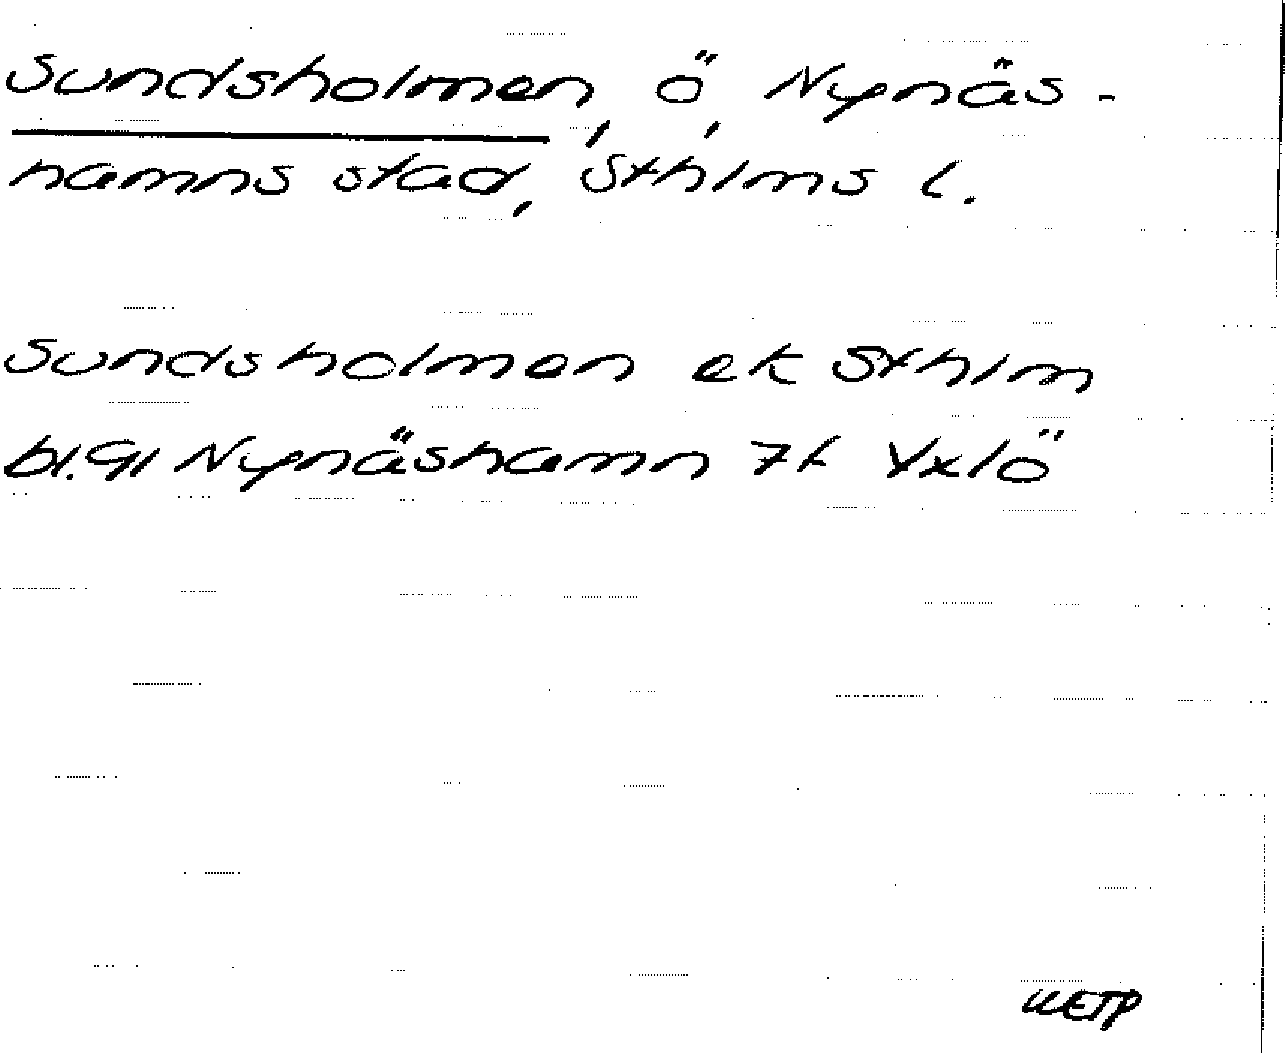 Sundsholmen, ö, Nynäs-
hamns stad, Sthlms l.
Sundsholmen ek Sthlm
bl. 91 Nynäshamn 7f Yxlö